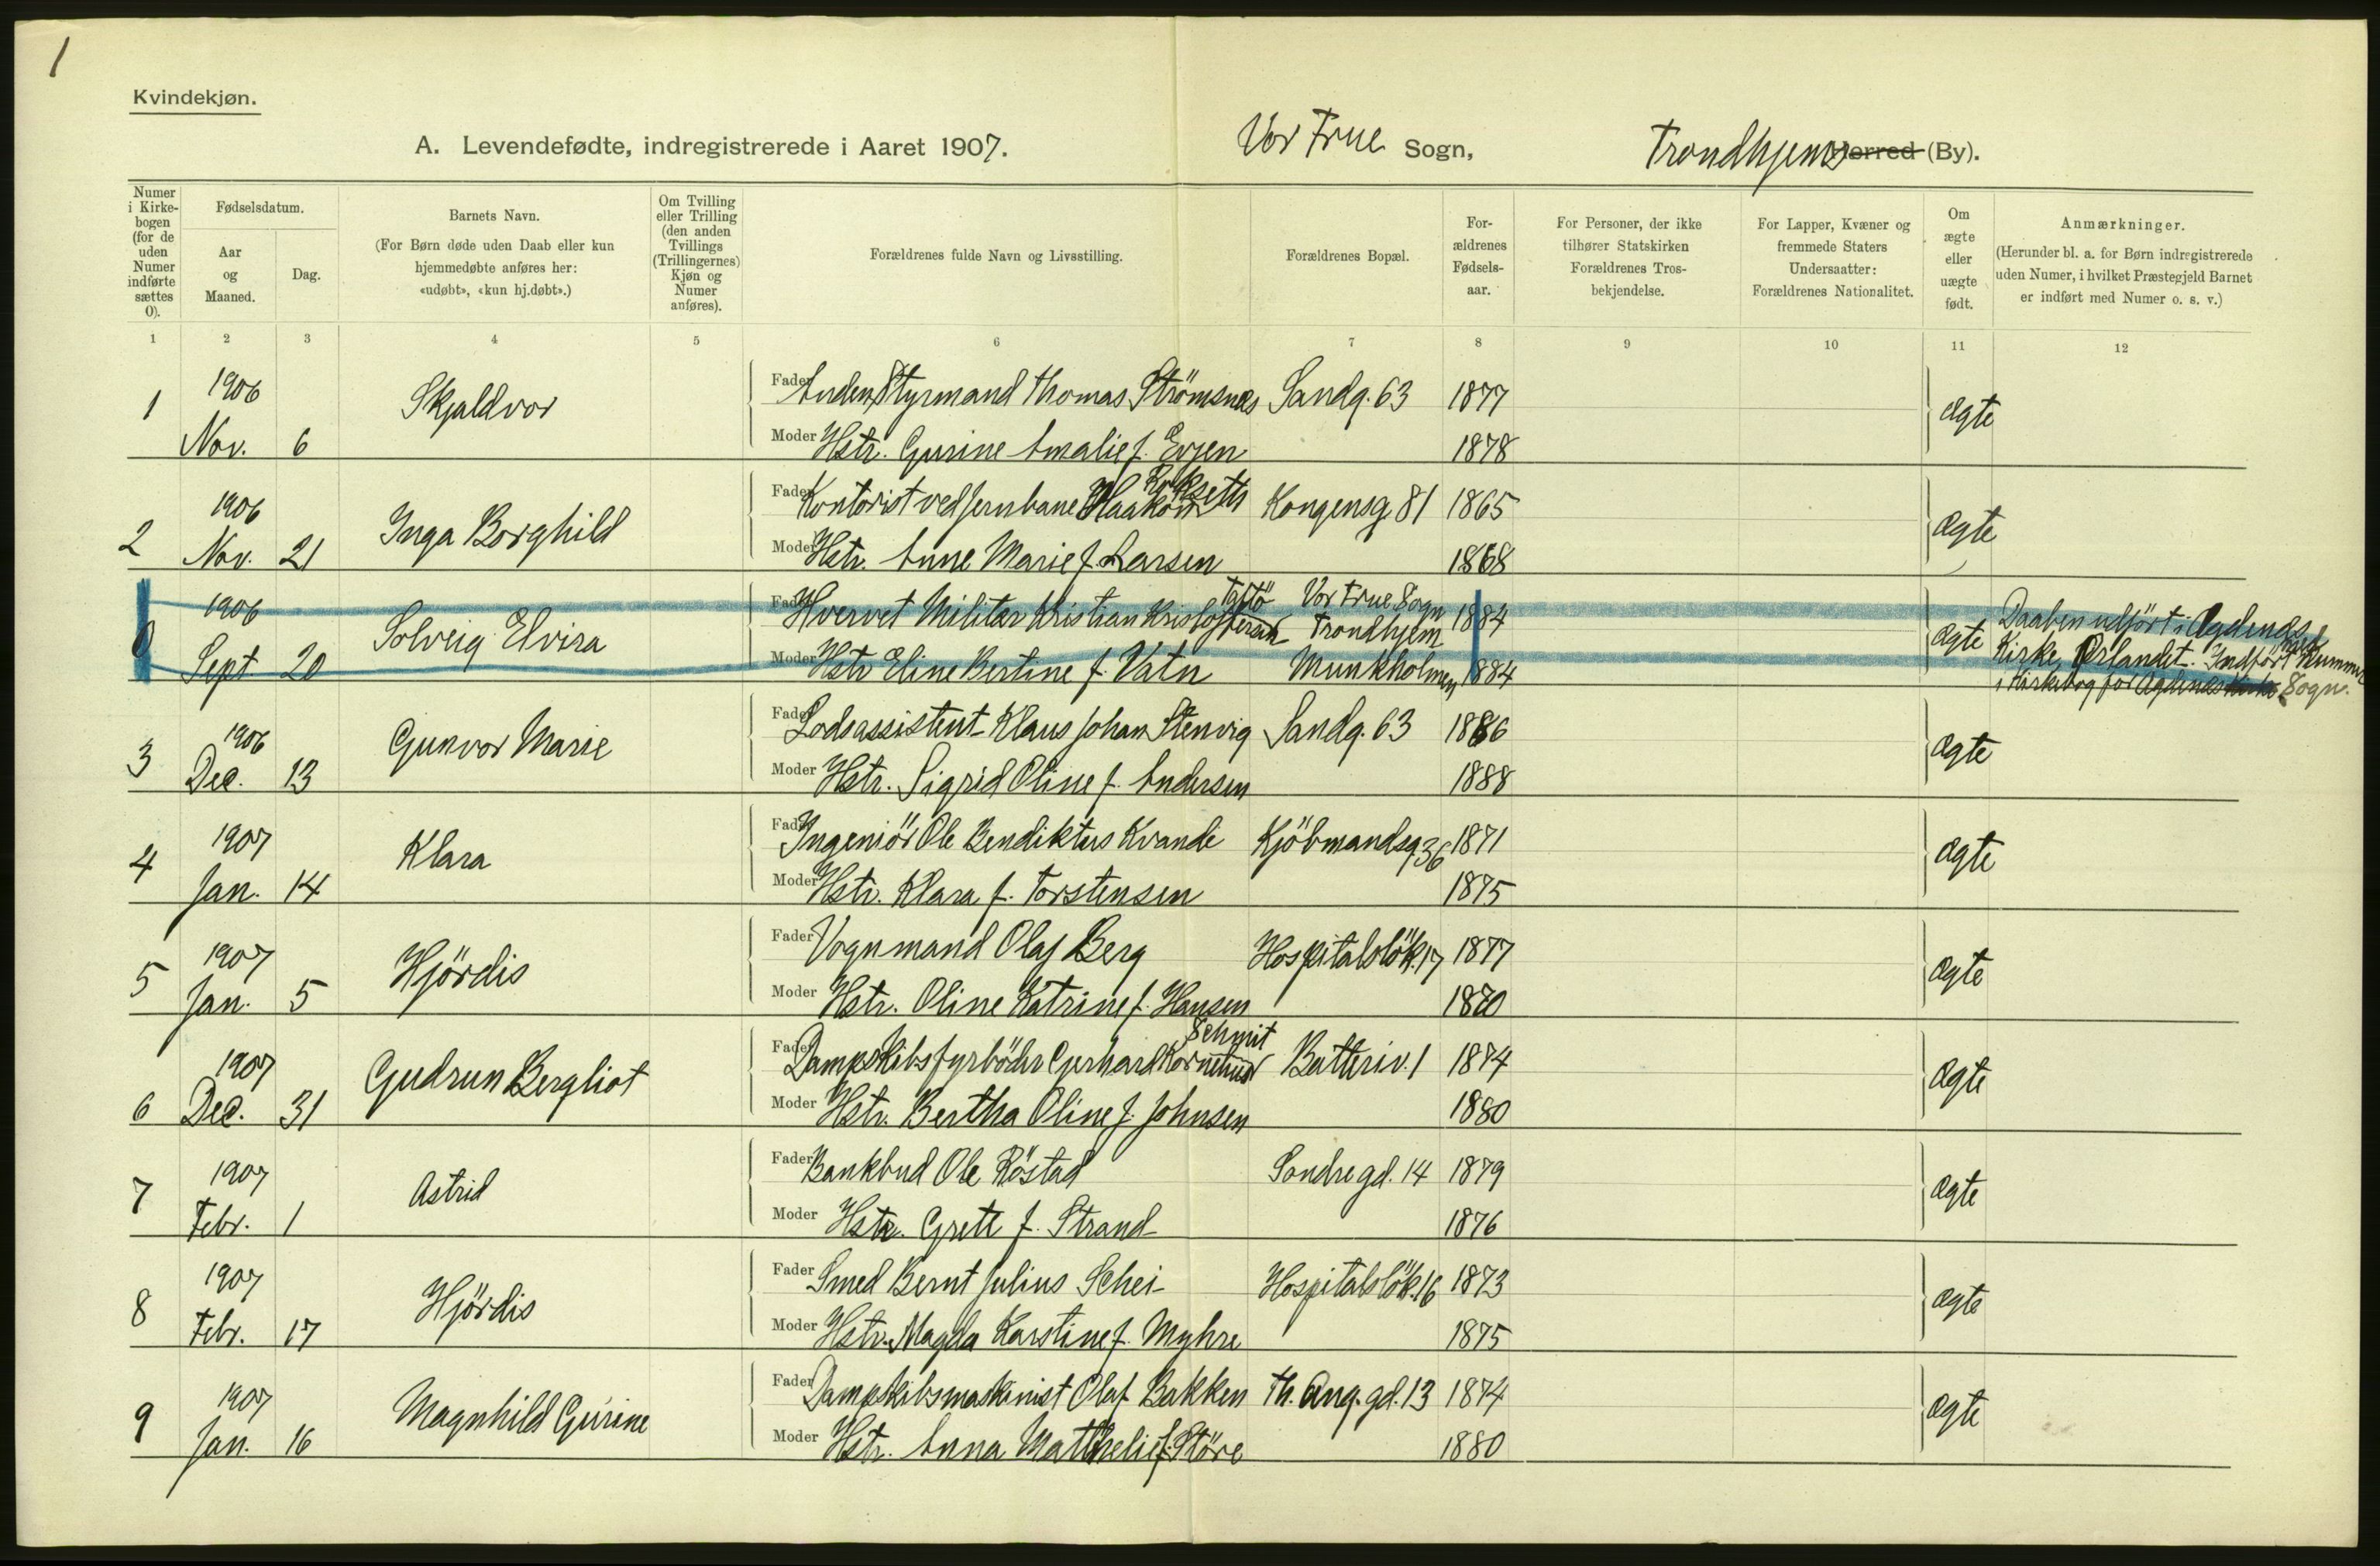 1
Kvindekjøn.
A. Levendefødte, indregistrerede i Aaret 1907. Vor Frue Sogn, Trondhjems Herred (By).
Numer i Kirke-bogen (for de uden Numer indførte sættes 0).
Fødselsdatum.
Aar og Maaned.
Dag.
Barnets Navn.
(For Børn døde uden Daab eller kun hjemmedøbte anføres her: «udøbt», «kun hj.døbt».)
Om Tvilling eller Trilling (den anden Tvillings (Trillingernes) Kjøn og Numer anføres).
Forældrenes fulde Navn og Livsstilling.
Forældrenes Bopæl.
For-ældrenes Fødsels-aar.
For Personer, der ikke tilhører Statskirken Forældrenes Tros-bekjendelse.
For Lapper, Kvæner og fremmede Staters Undersaatter: Forældrenes Nationalitet.
Om ægte eller uægte født.
Anmærkninger.
(Herunder bl. a. for Børn indregistrerede uden Numer, i hvilket Præstegjeld Barnet er indført med Numer o. s. v.)
1 2 3 4 5 6 7 8 9 10 11 12
1 1906 Nov. 6 Skjaldvor Fader Anden Styrmand Thomas Strömsnes Sandg. 63 1877 ægte
Moder Hstr. Gurine Amalie f. Evjen 1878
2 1906 Nov. 21 Inga Borghild Fader Kontorist ved Jernbane Haakon Kongensg 81 1865 ægte
Moder Hstr. Anne Marie f. Larsen 1868
0 1906 Sept. 20 Solveig Elvira Fader Hvervet Militær Kristian Kristoffersen Taftö Vor Frue Sogn Trondhjem 1884 ægte
Moder Hstr Eline Bertine f. Vatn Munkholmen 1884
Daaben udført i Agdenes
Kirke, Ørlandet. Indført med Nummer
i Kirkebog for Agdenes Kirke Sogn.
3 1906 Dec. 13 Gunvor Marie Fader Lodsassistent Klaus Johan Stenvig Sandg. 63 1886 ægte
Moder Hstr. Sigrid Oline f. Andersen 1888
4 1907 Jan. 14 Klara Fader Ingeniör Ole Bendiktus Kvande Kjöbmandsg 36 1871 ægte
Moder Hstr. Klara f. Torstensen 1875
5 1907 Jan. 5 Hjördis Fader Vognmand Olaf Berg Hospitalslök. 17 1877 ægte
Moder Hstr. Oline Katrine f. Hansen 1870
6 1907 Dec. 31 Gudrun Bergliot Fader Dampskibsfyrböder Gerhard Kornelius Schmit Batteriv. 1 1874 ægte
Moder Hstr. Bertha Oline f. Johnsen 1880
7 1907 Febr. 1 Astrid Fader Bankbud Ole Röstad Sondregd. 14 1879 ægte
Moder Hstr. Grett f. Strand 1876
8 1907 Febr. 17 Hjördis Fader Smed Bernt Julius Schei Hospitalslök. 16 1873 ægte
Moder Hstr. Magda Karstine f. Myhre 1875
9 1907 Jan. 16 Magnhild Gurine Fader Dampskibsmaskinist Olaf Bakken Th. Ang. gd. 13 1874 ægte
Moder Hstr. Anna Mathelie f. Störe 1880